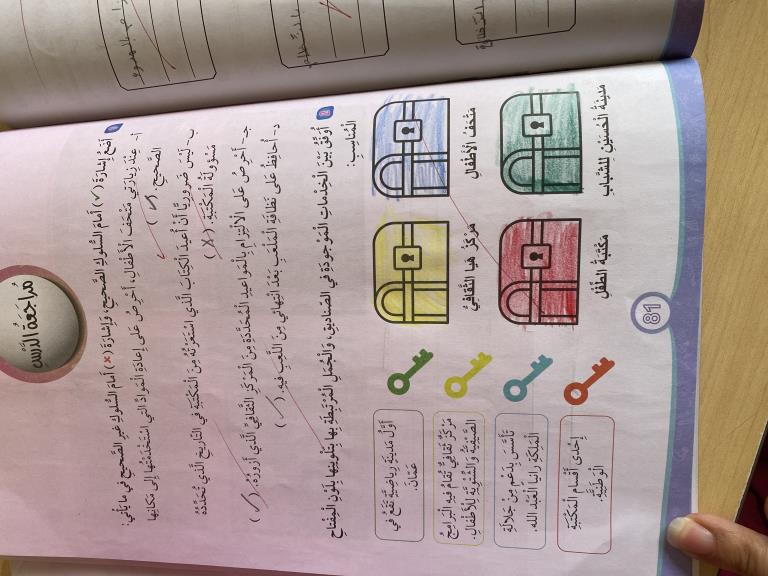 مُراجَعَةُ الدَّرْسِ
1 أَضَعُ إِشارَةَ (✓) أَمامَ السُّلوكِ الصَّحيحِ، وَإِشارَةَ (×) أَمامَ السُّلوكِ غَيْرِ الصَّحيحِ في ما يَأْتي:
أ- عِنْدَ زِيارَتي مُتْحَفَ الْأَطْفالِ، أَحْرِصُ عَلى إِعادَةِ الْمَوادِّ الَّتي اسْتَخْدَمْتُها إِلى مَكانِها
الصَّحيحِ. (✓)
ب- لَيْسَ ضَرورِيًّا أَنْ أُعيدَ الْكِتابَ الَّذي اسْتَعَرْتُهُ مِنَ الْمَكْتَبَةِ في التّاريخِ الَّذي تُحَدِّدُهُ
مَسْؤولَةُ الْمَكْتَبَةِ. (×)
جـ- أَحْرِصُ عَلى الِالْتِزامِ بِالْمَواعيدِ الْمُحَدَّدَةِ مِنَ الْمَرْكَزِ الثَّقافِيِّ الَّذي أَزورُهُ. (✓)
د- أُحافِظُ عَلى نَظافَةِ الْمَلْعَبِ بَعْدَ انْتِهائي مِنَ اللَّعِبِ فيهِ. (✓)
2 أُوَفِّقُ بَيْنَ الْخِدْماتِ الْمَوْجودَةِ في الصَّناديقِ، وَالْجُمَلِ الْمُرْتَبِطَةِ بِها بِتَلْوينِها بِلَوْنِ الْمِفْتاحِ
الْمُناسِبِ:
مُتْحَفُ الْأَطْفالِ
مَرْكَزُ هَيا الثَّقافِيُّ
مَدينَةُ الْحُسَيْنِ لِلشَّبابِ
مَكْتَبَةُ الطِّفْلِ
أَوَّلُ مَدينَةٍ رِياضِيَّةٍ تَقَعُ في
عَمّانَ.
مَرْكَزٌ ثَقافِيٌّ تُقامُ فيهِ الْبَرامِجُ
الصَّيْفِيَّةُ وَالشَّتْوِيَّةُ لِلْأَطْفالِ.
تَأَسَّسَ بِدَعْمٍ مِنْ جَلالَةِ
الْمَلِكَةِ رانيا الْعَبْدِ الله.
إِحْدى أَقْسامِ الْمَكْتَبَةِ
الْوَطَنِيَّةِ.
81